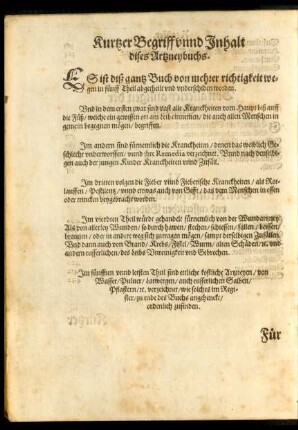 Kurtzer Begriff vnnd Inhalt
dises Artzneybuchs.
ES ist diß gantz Buch von mehrer richtigkeit we-
gen in fünff Theil abgetheilt vnd vnderschiden worden.
Vnd in dem ersten zwar sind vast alle Kranckheiten vom Haupt biß auff
die Füß / welche ein gewissen ort am leib einnemen / die auch allen Menschen in
gemein begegnen mögen / begriffen.
Im andern sind fürnemlich die Kranckheiten / denen das weiblich Ge-
schlecht vnderworffen / vnnd ihre Remedia verzeichnet. Vnnd nach denselbi-
gen auch der jungen Kinder Kranckheiten vnnd Zufäll.
Im dritten volgen die Fieber vnnd Fieberische Kranckheiten / als Rot-
lauffen / Pestilentz / vnnd etwas auch von Gifft / das dem Menschen in essen
oder trincken beygebracht worden.
Im vierdten Theil würdt gehandelt fürnemlich von der Wundartzney /
Als von allerley Wunden / so durch hawen / stechen / schiessen / fallen / beissen /
brennen / oder in andere weg sich zutragen mögen / sampt derselbigen Zufällen.
Vnd dann auch von Brand / Krebs / Fistel / Wurm / alten Schäden / ec. vnd
andern eusserlichen / des leibs Vnreinigkeit vnd Gebrechen.
Im fünfften vnnd letsten Theil sind etliche köstliche Artzneyen / von
Wasser / Puluer / Latwergen / auch eusserlichen Salben /
Pflastern / ec. verzeichnet / wie solches im Regi-
ster / zu ende des Buchs angehenckt /
ordenlich zufinden.
Für